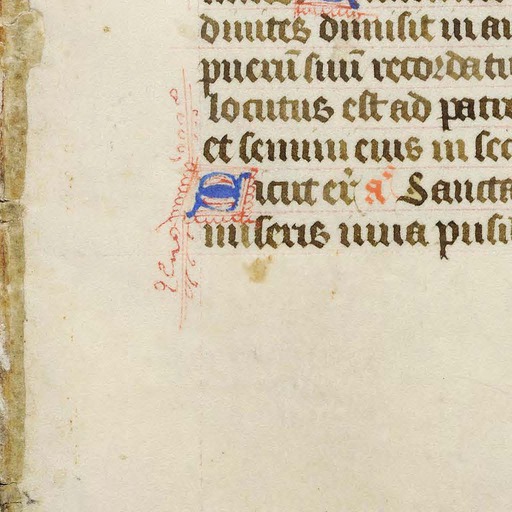 diuites dimisit in
puerū suū recordat
locutus est ad patr
et semini eius in sec
Sicut er̄ a͞ Sancta
miseris iuua pusi